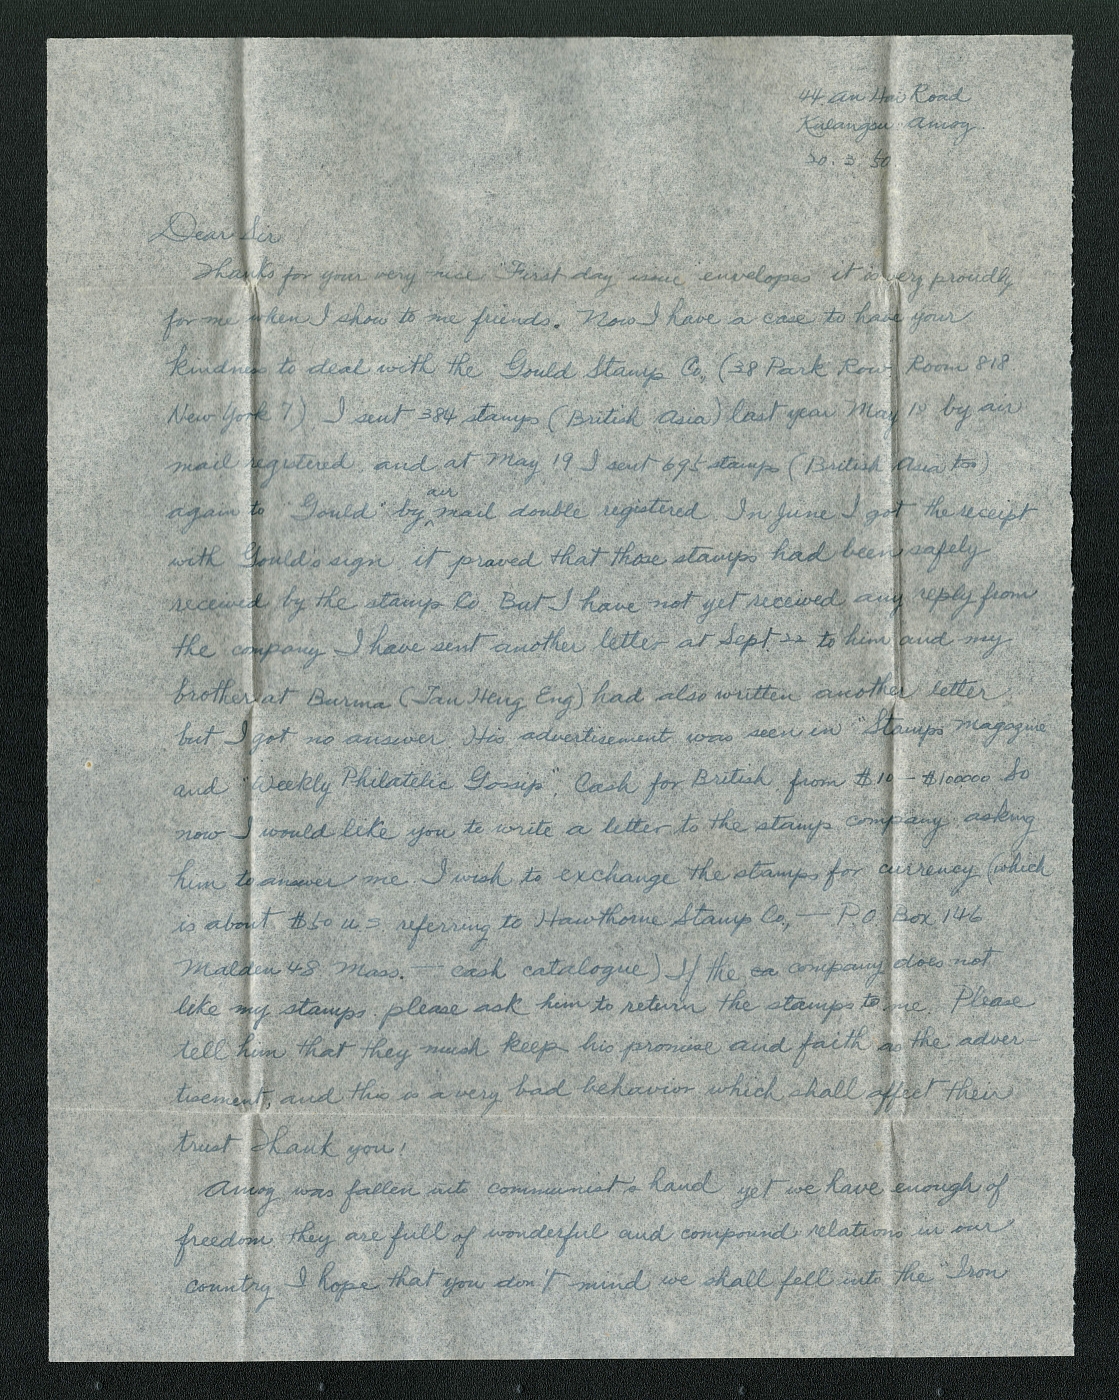 44 An Hai Road
Kulangsu Amoy
20. 3. 50.
Dear Sir
Thanks for your very nice "First day" issue envelopes it is very proudly
for me when I show to me friends. Now I have a case to have your
kindness to deal with the Gould Stamp Co., (38 Park Row, Room 818
New York 7) I sent 384 stamps (British Asia) last year May 18 by air
mail registered and at May 19 I sent 695 stamps (British Asia too)
again to "Gould" by air mail double registered. In June I got the receipt
with Gould's sign it proved that those stamps had been safely
received by the stamp Co. But I have not yet received any reply from
the company I have sent another letter at Sept. 22 to him and my
brother at Burma (Tan Heng Eng) had also written another letter
but I got no answer. His advertisement was seen in "Stamps Magazine
and "Weekly Philatelic Gossip". Cash for British from $10 - $100000 So
now I would like you to write a letter to the stamps company asking
him to answer me. I wish to exchange the stamps for currency (which
is about $50 U.S. referring to Hawthorne Stamp Co., — P.O. Box 146
Malden 48 Mass. — cash catalogue) If the ca company does not
like my stamps, please ask him to return the stamps to me. Please
tell him that they must keep his promise and faith as the adver-
tisement, and this is a very bad behavior which shall affect their
trust Thank you!
Amoy was fallen into communist's hand yet we have enough of
freedom they are full of wonderful and compound relations in our
country I hope that you don't mind we shall fell into the "Iron